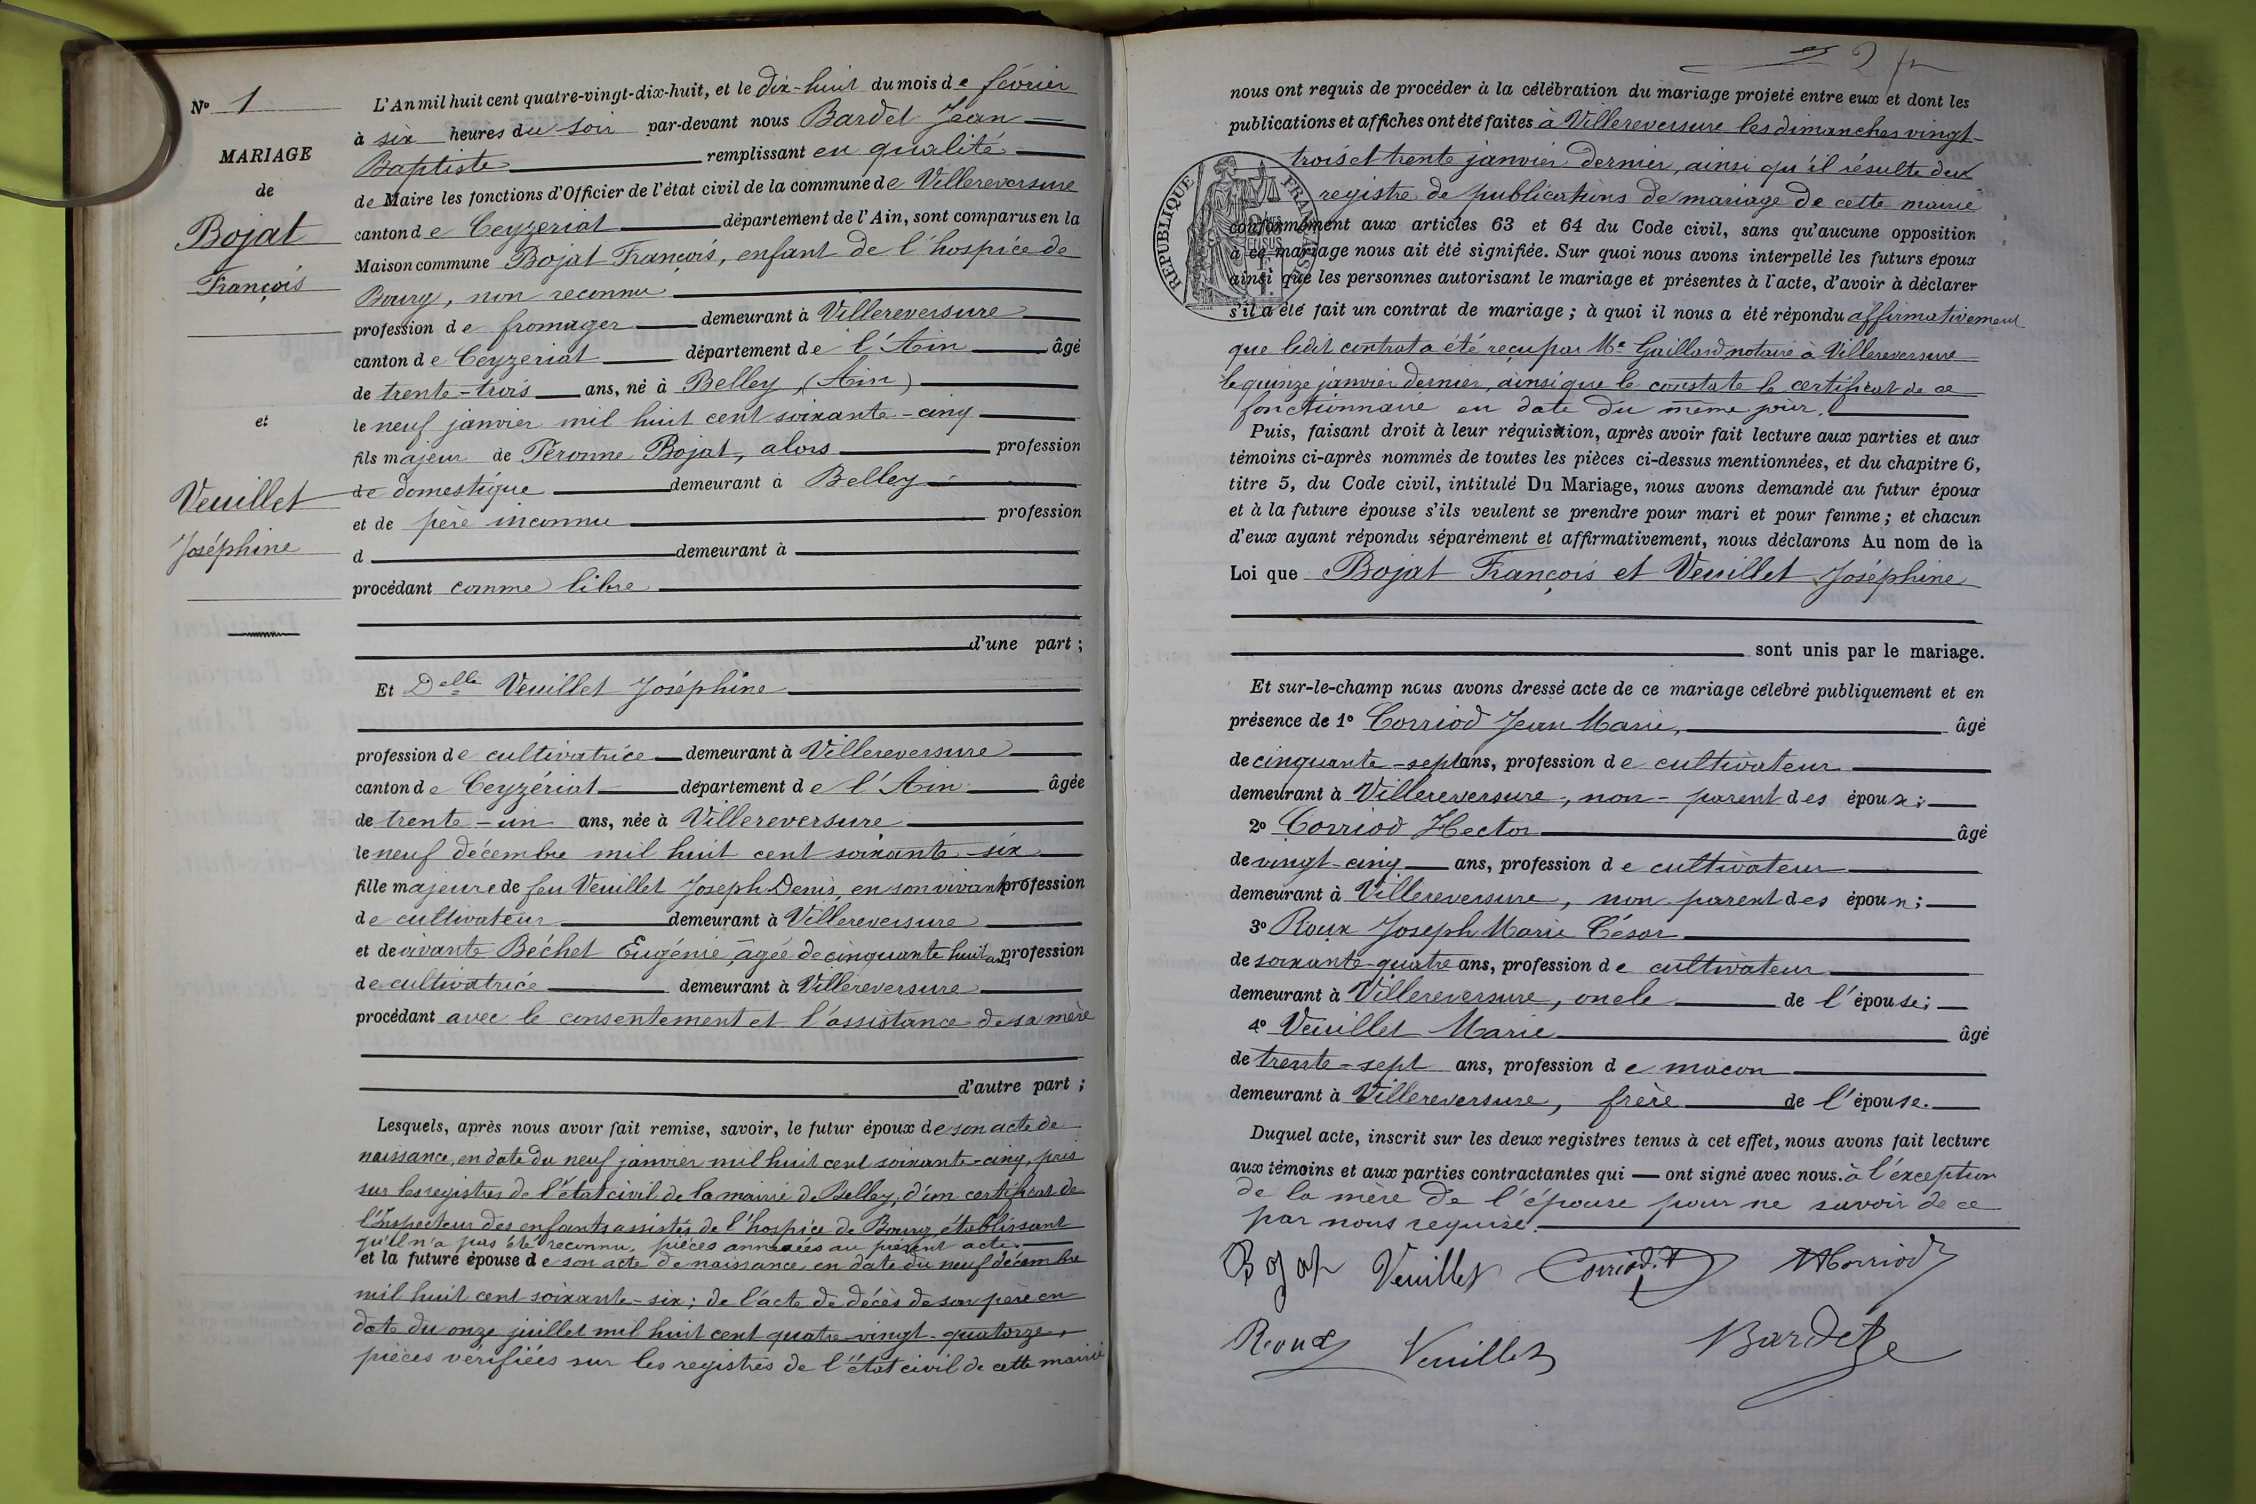 N° 1
MARIAGE
de
Bojat
François
et
Veuillet
Joséphine
L'An mil huit cent quatre-vingt-dix-huit, et le dix-huit du mois de février
à six heures du soir par-devant nous Bardet Jean
Baptiste remplissant en qualité
de Maire les fonctions d'Officier de l'état civil de la commune de Villereversure
canton de Ceyzeriat département de l'Ain, sont comparus en la
Maison commune Bojat François, enfant de l'hospice de
Bourg, non reconnu
profession de fromager demeurant à Villereversure
canton de Ceyzeriat département de l'Ain âgé
de trente-trois ans, né à Belley (Ain)
le neuf janvier mil huit cent soixante-cinq
fils majeur de Péronne Bojat, alors profession
de domestique demeurant à Belley
et de père inconnu profession
d demeurant à
procédant comme libre
d'une part ;
Et Delle Veuillet Joséphine
profession de cultivatrice demeurant à Villereversure
canton de Ceyzériat département de l'Ain âgée
de trente-un ans, née à Villereversure
le neuf décembre mil huit cent soixante-six
fille majeure de feu Veuillet Joseph Denis, en son vivant profession
de cultivateur demeurant à Villereversure
et de vivante Béchet Eugénie, âgée de cinquante huit ans profession
de cultivatrice demeurant à Villereversure
procédant avec le consentement et l'assistance de sa mère
d'autre part ;
Lesquels, après nous avoir fait remise, savoir, le futur époux de son acte de
naissance, en date du neuf janvier mil huit cent soixante-cinq, pris
sur les registres de l'état civil de la mairie de Belley, d'un certificat de
l'Inspecteur des enfants assistés de l'hospice de Bourg, établissant
qu'il n'a pas été reconnu, pièces annexées au présent acte.
et la future épouse de son acte de naissance en date du neuf décembre
mil huit cent soixante-six; de l'acte de décès de son père en
date du onze juillet mil huit cent quatre-vingt-quatorze,
pièces vérifiées sur les registres de l'état civil de cette mairie
2
nous ont requis de procéder à la célébration du mariage projeté entre eux et dont les
publications et affiches ont été faites à Villereversure les dimanches vingt-
trois et trente janvier dernier, ainsi qu'il résulte du
registre de publications de mariage de cette mairie
RÉPUBLIQUE FRANÇAISE
conformément aux articles 63 et 64 du Code civil, sans qu'aucune opposition
à ce mariage nous ait été signifiée. Sur quoi nous avons interpellé les futurs époux
ainsi que les personnes autorisant le mariage et présentes à l'acte, d'avoir à déclarer
s'il a été fait un contrat de mariage ; à quoi il nous a été répondu affirmativement
que ledit contrat a été reçu par Me Gaillard notaire à Villereversure
le quinze janvier dernier, ainsi que le constate le certificat de ce
fonctionnaire en date du même jour.
Puis, faisant droit à leur réquisition, après avoir fait lecture aux parties et aux
témoins ci-après nommés de toutes les pièces ci-dessus mentionnées, et du chapitre 6,
titre 5, du Code civil, intitulé Du Mariage, nous avons demandé au futur époux
et à la future épouse s'ils veulent se prendre pour mari et pour femme ; et chacun
d'eux ayant répondu séparément et affirmativement, nous déclarons Au nom de la
Loi que Bojat François et Veuillet Joséphine
sont unis par le mariage.
Et sur-le-champ nous avons dressé acte de ce mariage célébré publiquement et en
présence de 1° Corriod Jean Marie, âgé
de cinquante-sept ans, profession de cultivateur
demeurant à Villereversure, non-parent des époux ;
2° Corriod Hector âgé
de vingt-cinq ans, profession de cultivateur
demeurant à Villereversure, non parent des époux ;
3° Roux Joseph Marie César
de soixante-quatre ans, profession de cultivateur
demeurant à Villereversure, oncle de l'épouse ;
4° Veuillet Marie âgé
de trente-sept ans, profession de maçon
demeurant à Villereversure, frère de l'épouse.
Duquel acte, inscrit sur les deux registres tenus à cet effet, nous avons fait lecture
aux témoins et aux parties contractantes qui ont signé avec nous. à l'exception
de la mère de l'épouse pour ne savoir de ce
par nous requise.
Bojat Veuillet Corriod.H Corriod
Roux Veuillet Bardet